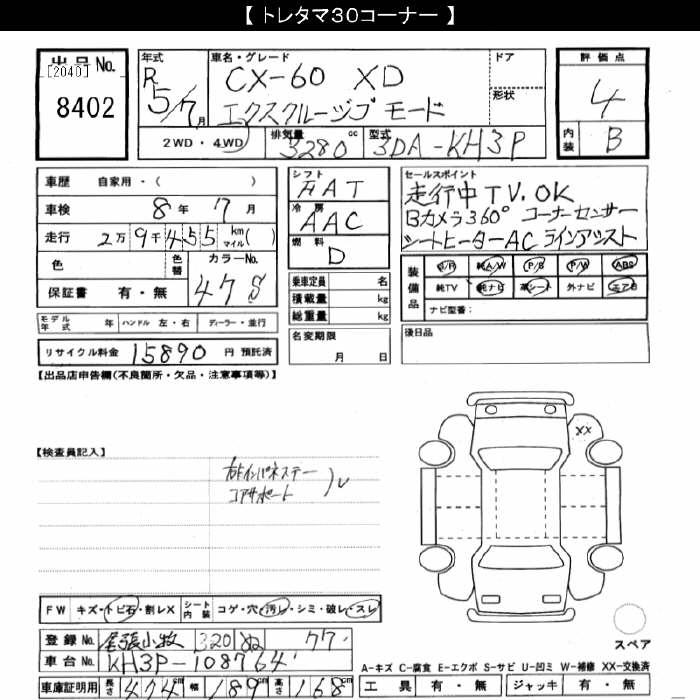 【 トレタマ30コーナー 】
出品No.
[2040]
8402
年式
R
5/7月
車名・グレード
CX-60 XD
エクスクルーシブ モード
ドア
形状
2WD・4WD
排気量
3280 cc
型式
3DA-KH3P
評価点
4
内装
B
車歴 自家用・( )
車検 8年 7月
走行 2万9千455 km マイル( )
色
色替
カラーNo.
47S
保証書 有・無
シフト
FAT
冷房
AAC
燃料
D
乗車定員 名
積載量 kg
総重量 kg
名変期限
月 日
セールスポイント
走行中TV.OK
Bカメラ360° コーナーセンサー
シートヒーターAC ラインアシスト
装備品
S/R 純A/W P/S P/W ABS
純TV 純ナビ 革シート 外ナビ エアB
ナビ型番:
後日品
モデル年式 年 ハンドル 左・右 ディーラー・並行
リサイクル料金 15890 円 預託済
【出品店申告欄(不良箇所・欠品・注意事項等)】
【検査員記入】
インパネステー
コアサポート
XX
FW キズ・トビ石・割レX
シート内装 コゲ・穴・汚レ・シミ・破レ・スレ
登録No. 尾張小牧 320 ぬ 77
車台No. KH3P-108764
車庫証明用 長さ 474cm 幅 189cm 高さ 168cm
スペア
A-キズ C-腐食 E-エクボ S-サビ U-凹ミ W-補修 XX-交換済
工具 有・無 ジャッキ 有・無